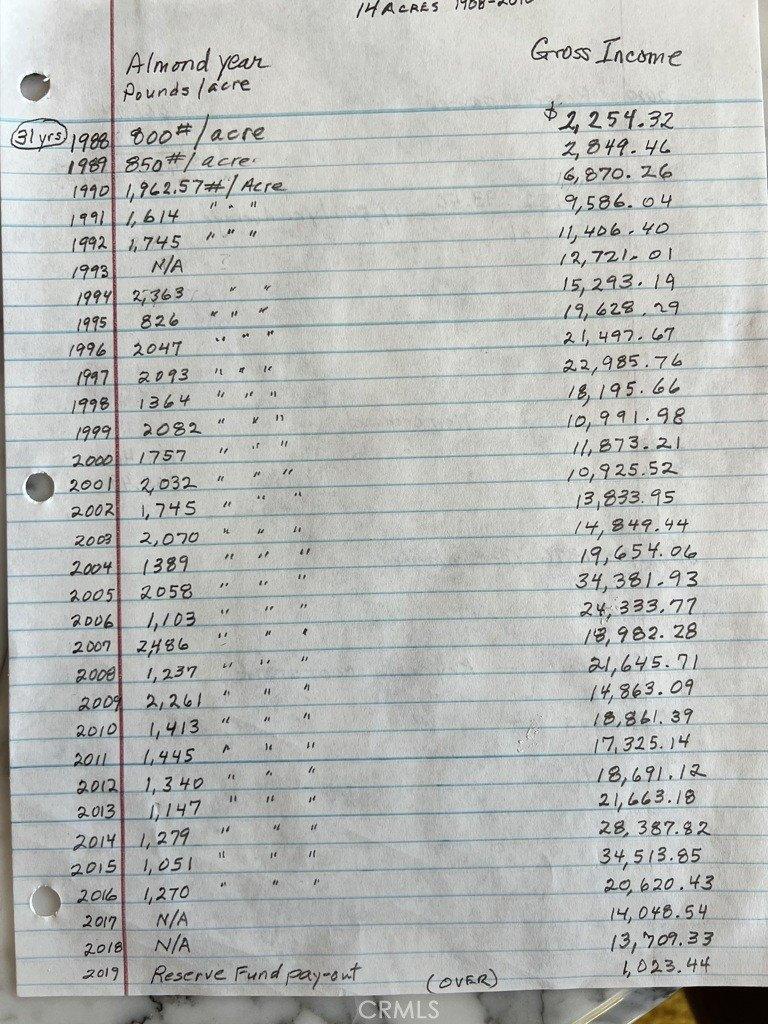 14 ACRES 1988-2016
Almond year Gross Income
Pounds/acre
31 yrs 1988 800#/acre $2,254.32
1989 850#/acre. 2,849.46
1990 1,962.57#/Acre 6,870.26
1991 1,614 " " " 9,586.04
1992 1,745 " " " 11,406.40
1993 N/A 12,721.01
1994 2,363 " " 15,293.19
1995 826 " " " 19,628.29
1996 2047 " " " 21,497.67
1997 2093 " " " 22,985.76
1998 1364 " " " 18,195.66
1999 2082 " " " 10,991.98
2000 1757 " " " 11,873.21
2001 2,032 " " " 10,925.52
2002 1,745 " " " 13,833.95
2003 2,070 " " " 14,849.44
2004 1389 " " " 19,654.06
2005 2058 " " " 34,381.93
2006 1,103 " " " 24,333.77
2007 2,486 " " " 18,982.28
2008 1,237 " " " 21,645.71
2009 2,261 " " " 14,863.09
2010 1,413 " " " 18,861.39
2011 1,445 " " " 17,325.14
2012 1,340 " " " 18,691.12
2013 1,147 " " " 21,663.18
2014 1,279 " " " 28,387.82
2015 1,051 " " " 34,513.85
2016 1,270 " " " 20,620.43
2017 N/A 14,048.54
2018 N/A 13,709.33
2019 Reserve Fund pay-out (OVER) 1,023.44
CRMLS